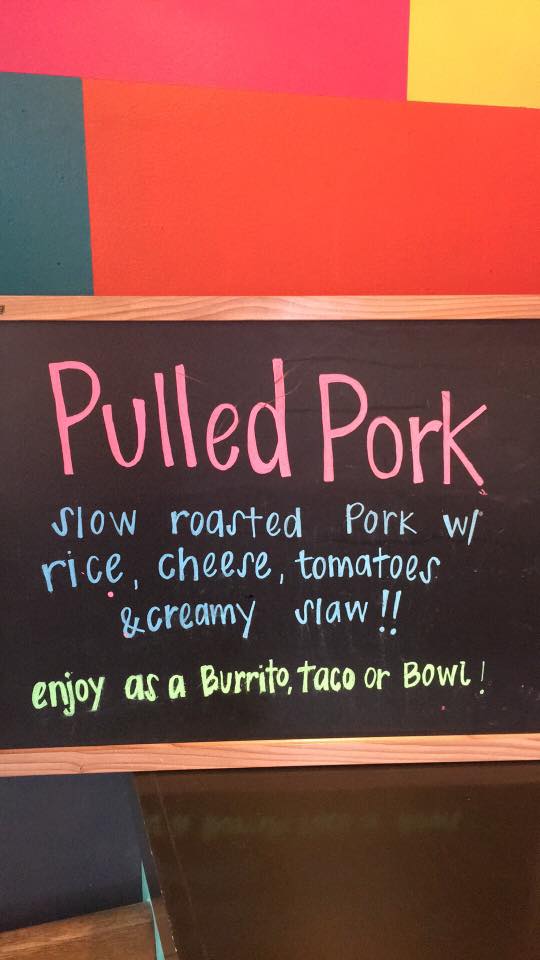 Pulled Pork
slow roasted Pork w/
rice, cheese, tomatoes
& creamy slaw!!
enjoy as a Burrito, taco or Bowl!